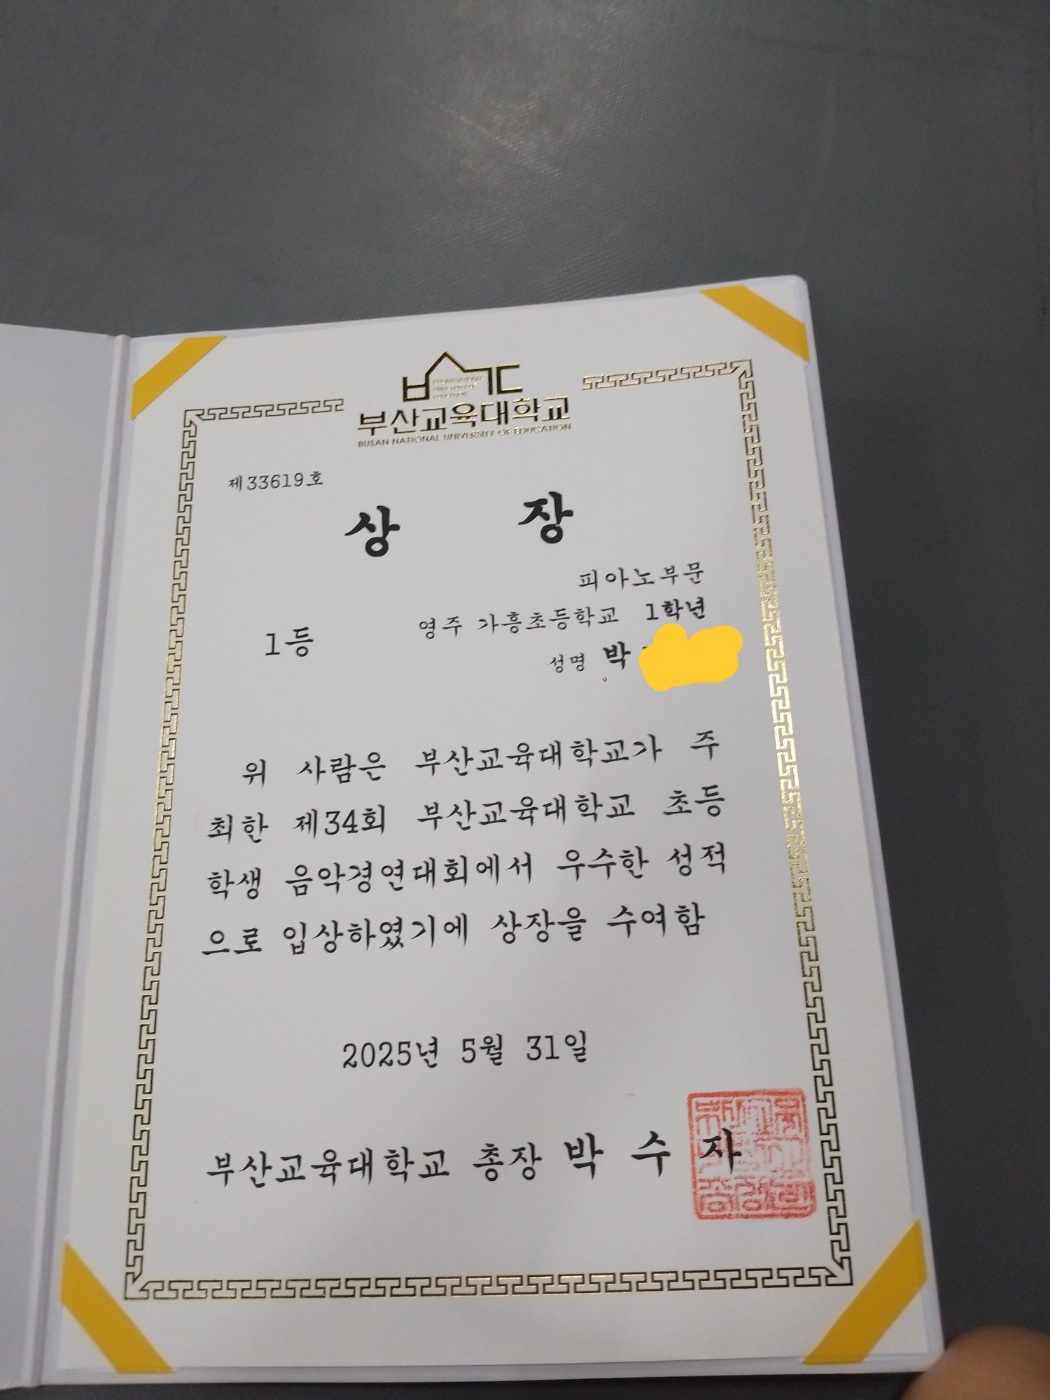 부산교육대학교
BUSAN NATIONAL UNIVERSITY OF EDUCATION
제33619호
상 장
피아노부문
1등 영주 가흥초등학교 1학년
성명 박
위 사람은 부산교육대학교가 주
최한 제34회 부산교육대학교 초등
학생 음악경연대회에서 우수한 성적
으로 입상하였기에 상장을 수여함
2025년 5월 31일
부산교육대학교 총장 박 수 자